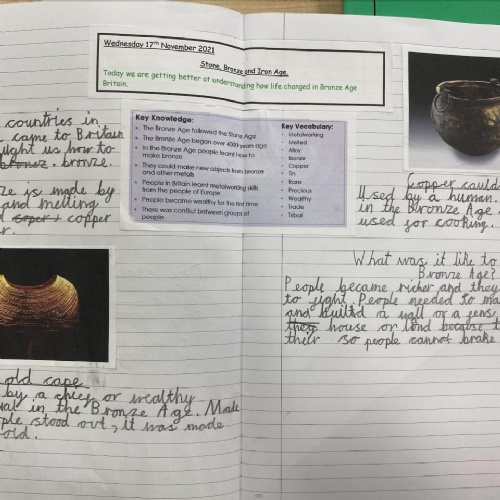 Wednesday 17th November 2021
Stone, Bronze and Iron Age.
Today we are getting better at understanding how life changed in Bronze Age
Britain.
countries in
came to Britain
ught us how to
bronze.
ze is made by
and melting
copper
r.
Key Knowledge:
The Bronze Age followed the Stone Age
The Bronze Age began over 4000 years ago
In the Bronze Age people learnt how to
make bronze
They could make new objects from bronze
and other metals
People in Britain learnt metalworking skills
from the people of Europe
People became wealthy for the first time
There was conflict between groups of
people
Key Vocabulary:
Metalworking
Melted
Alloy
Bronze
Copper
Tin
Rare
Precious
Wealthy
Trade
Tribal
old cape
by a chief or wealthy
ual in the Bronze Age. Made
ple stood out, It was made
old.
Copper cauld
Used by a human.
in the Bronze Age
used for cooking.
What was it like to
Bronze Age?
People became richer and they
to fight. People needed to ma
and build a wall or a fens,
they house or land because t
their so people cannot brake